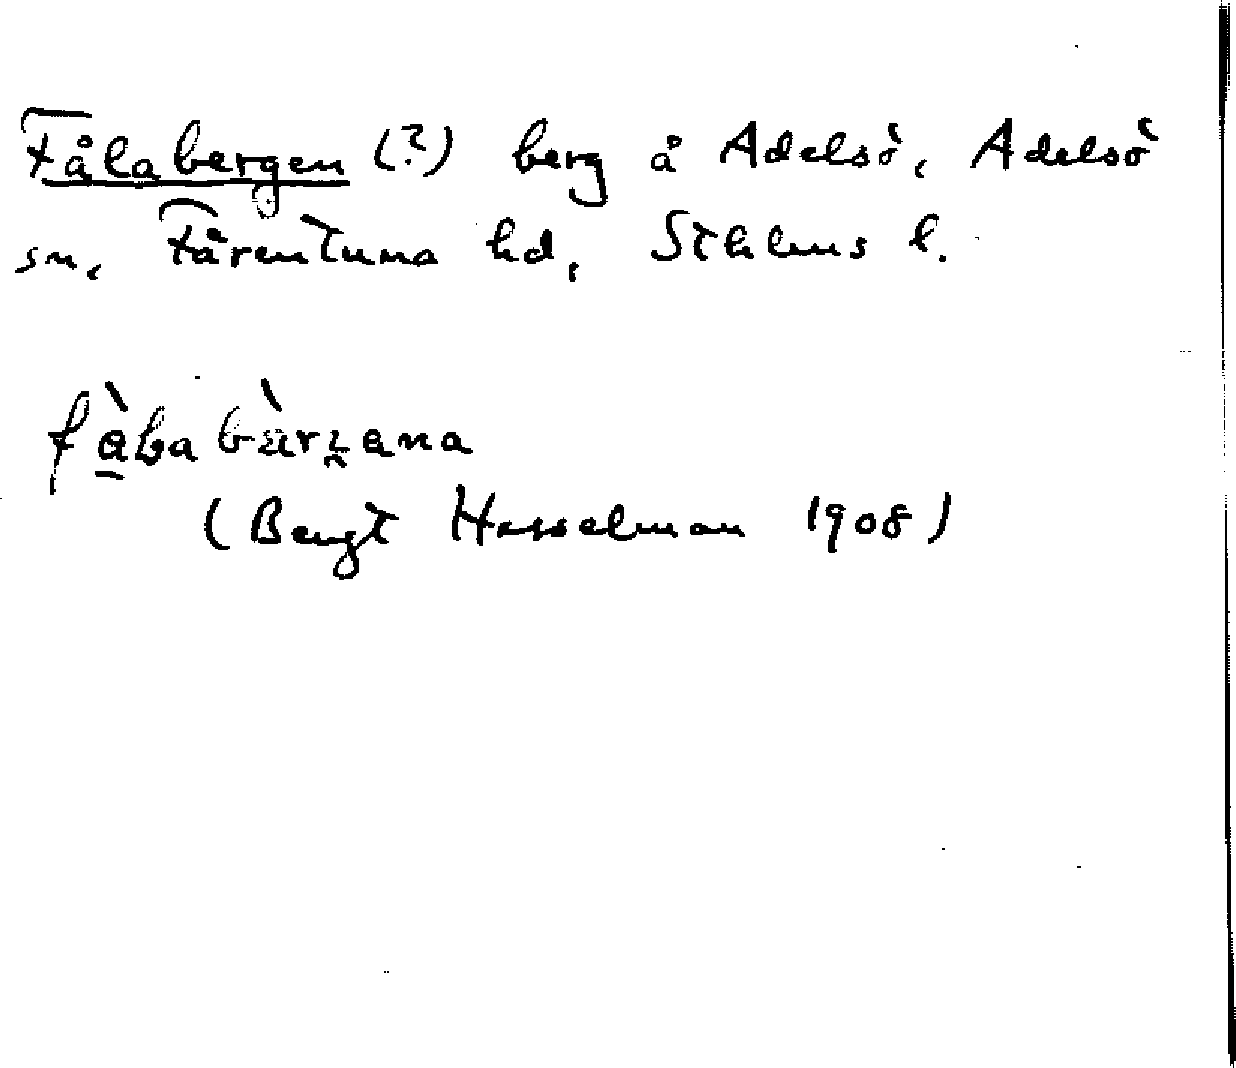 Fålabergen (?) berg å Adelsö, Adelsö
sn, Färentuna hd, Sthlms l.
(Bengt Hesselman 1908)